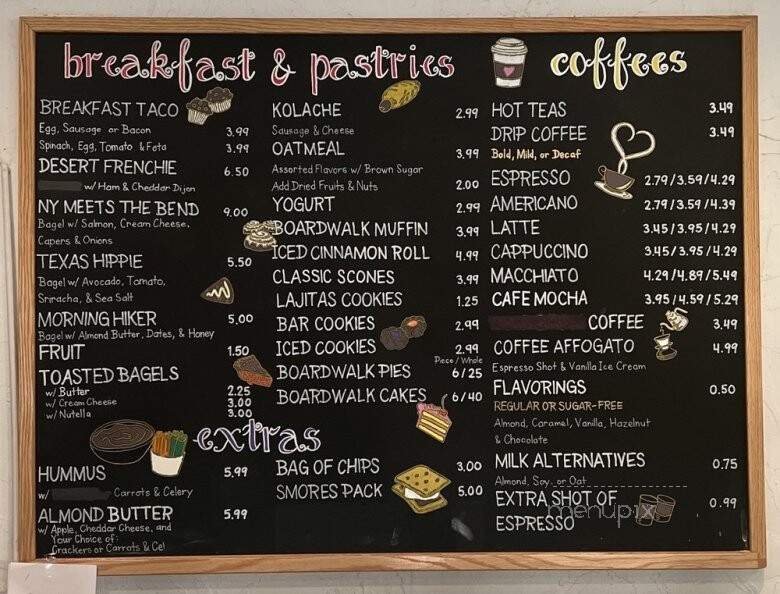 breakfast & pastries
BREAKFAST TACO
Egg, Sausage or Bacon 3.99
Spinach, Egg, Tomato & Feta 3.99
DESERT FRENCHIE 6.50
w/ Ham & Cheddar Dijon
NY MEETS THE BEND 9.00
Bagel w/ Salmon, Cream Cheese,
Capers & Onions
TEXAS HIPPIE 5.50
Bagel w/ Avocado, Tomato,
Sriracha, & Sea Salt
MORNING HIKER 5.00
Bagel w/ Almond Butter, Dates, & Honey
FRUIT 1.50
TOASTED BAGELS
w/ Butter 2.25
w/ Cream Cheese 3.00
w/ Nutella 3.00
KOLACHE 2.99
Sausage & Cheese
OATMEAL 3.99
Assorted Flavors w/ Brown Sugar
Add Dried Fruits & Nuts 2.00
YOGURT 2.99
BOARDWALK MUFFIN 3.99
ICED CINNAMON ROLL 4.99
CLASSIC SCONES 3.99
LAJITAS COOKIES 1.25
BAR COOKIES 2.99
ICED COOKIES 2.99
Piece / Whole
BOARDWALK PIES 6/25
BOARDWALK CAKES 6/40
extras
HUMMUS 5.99
w/ Carrots & Celery
ALMOND BUTTER 5.99
w/ Apple, Cheddar Cheese, and
Your Choice of:
Crackers or Carrots & Cel
BAG OF CHIPS 3.00
SMORES PACK 5.00
coffees
HOT TEAS 3.49
DRIP COFFEE 3.49
Bold, Mild, or Decaf
ESPRESSO 2.79/3.59/4.29
AMERICANO 2.79/3.59/4.39
LATTE 3.45/3.95/4.29
CAPPUCCINO 3.45/3.95/4.29
MACCHIATO 4.29/4.89/5.49
CAFE MOCHA 3.95/4.59/5.29
COFFEE 3.49
COFFEE AFFOGATO 4.99
Espresso Shot & Vanilla Ice Cream
FLAVORINGS 0.50
REGULAR OR SUGAR-FREE
Almond, Caramel, Vanilla, Hazelnut
& Chocolate
MILK ALTERNATIVES 0.75
Almond, Soy, or Oat
EXTRA SHOT OF 0.99
ESPRESSO
menupix